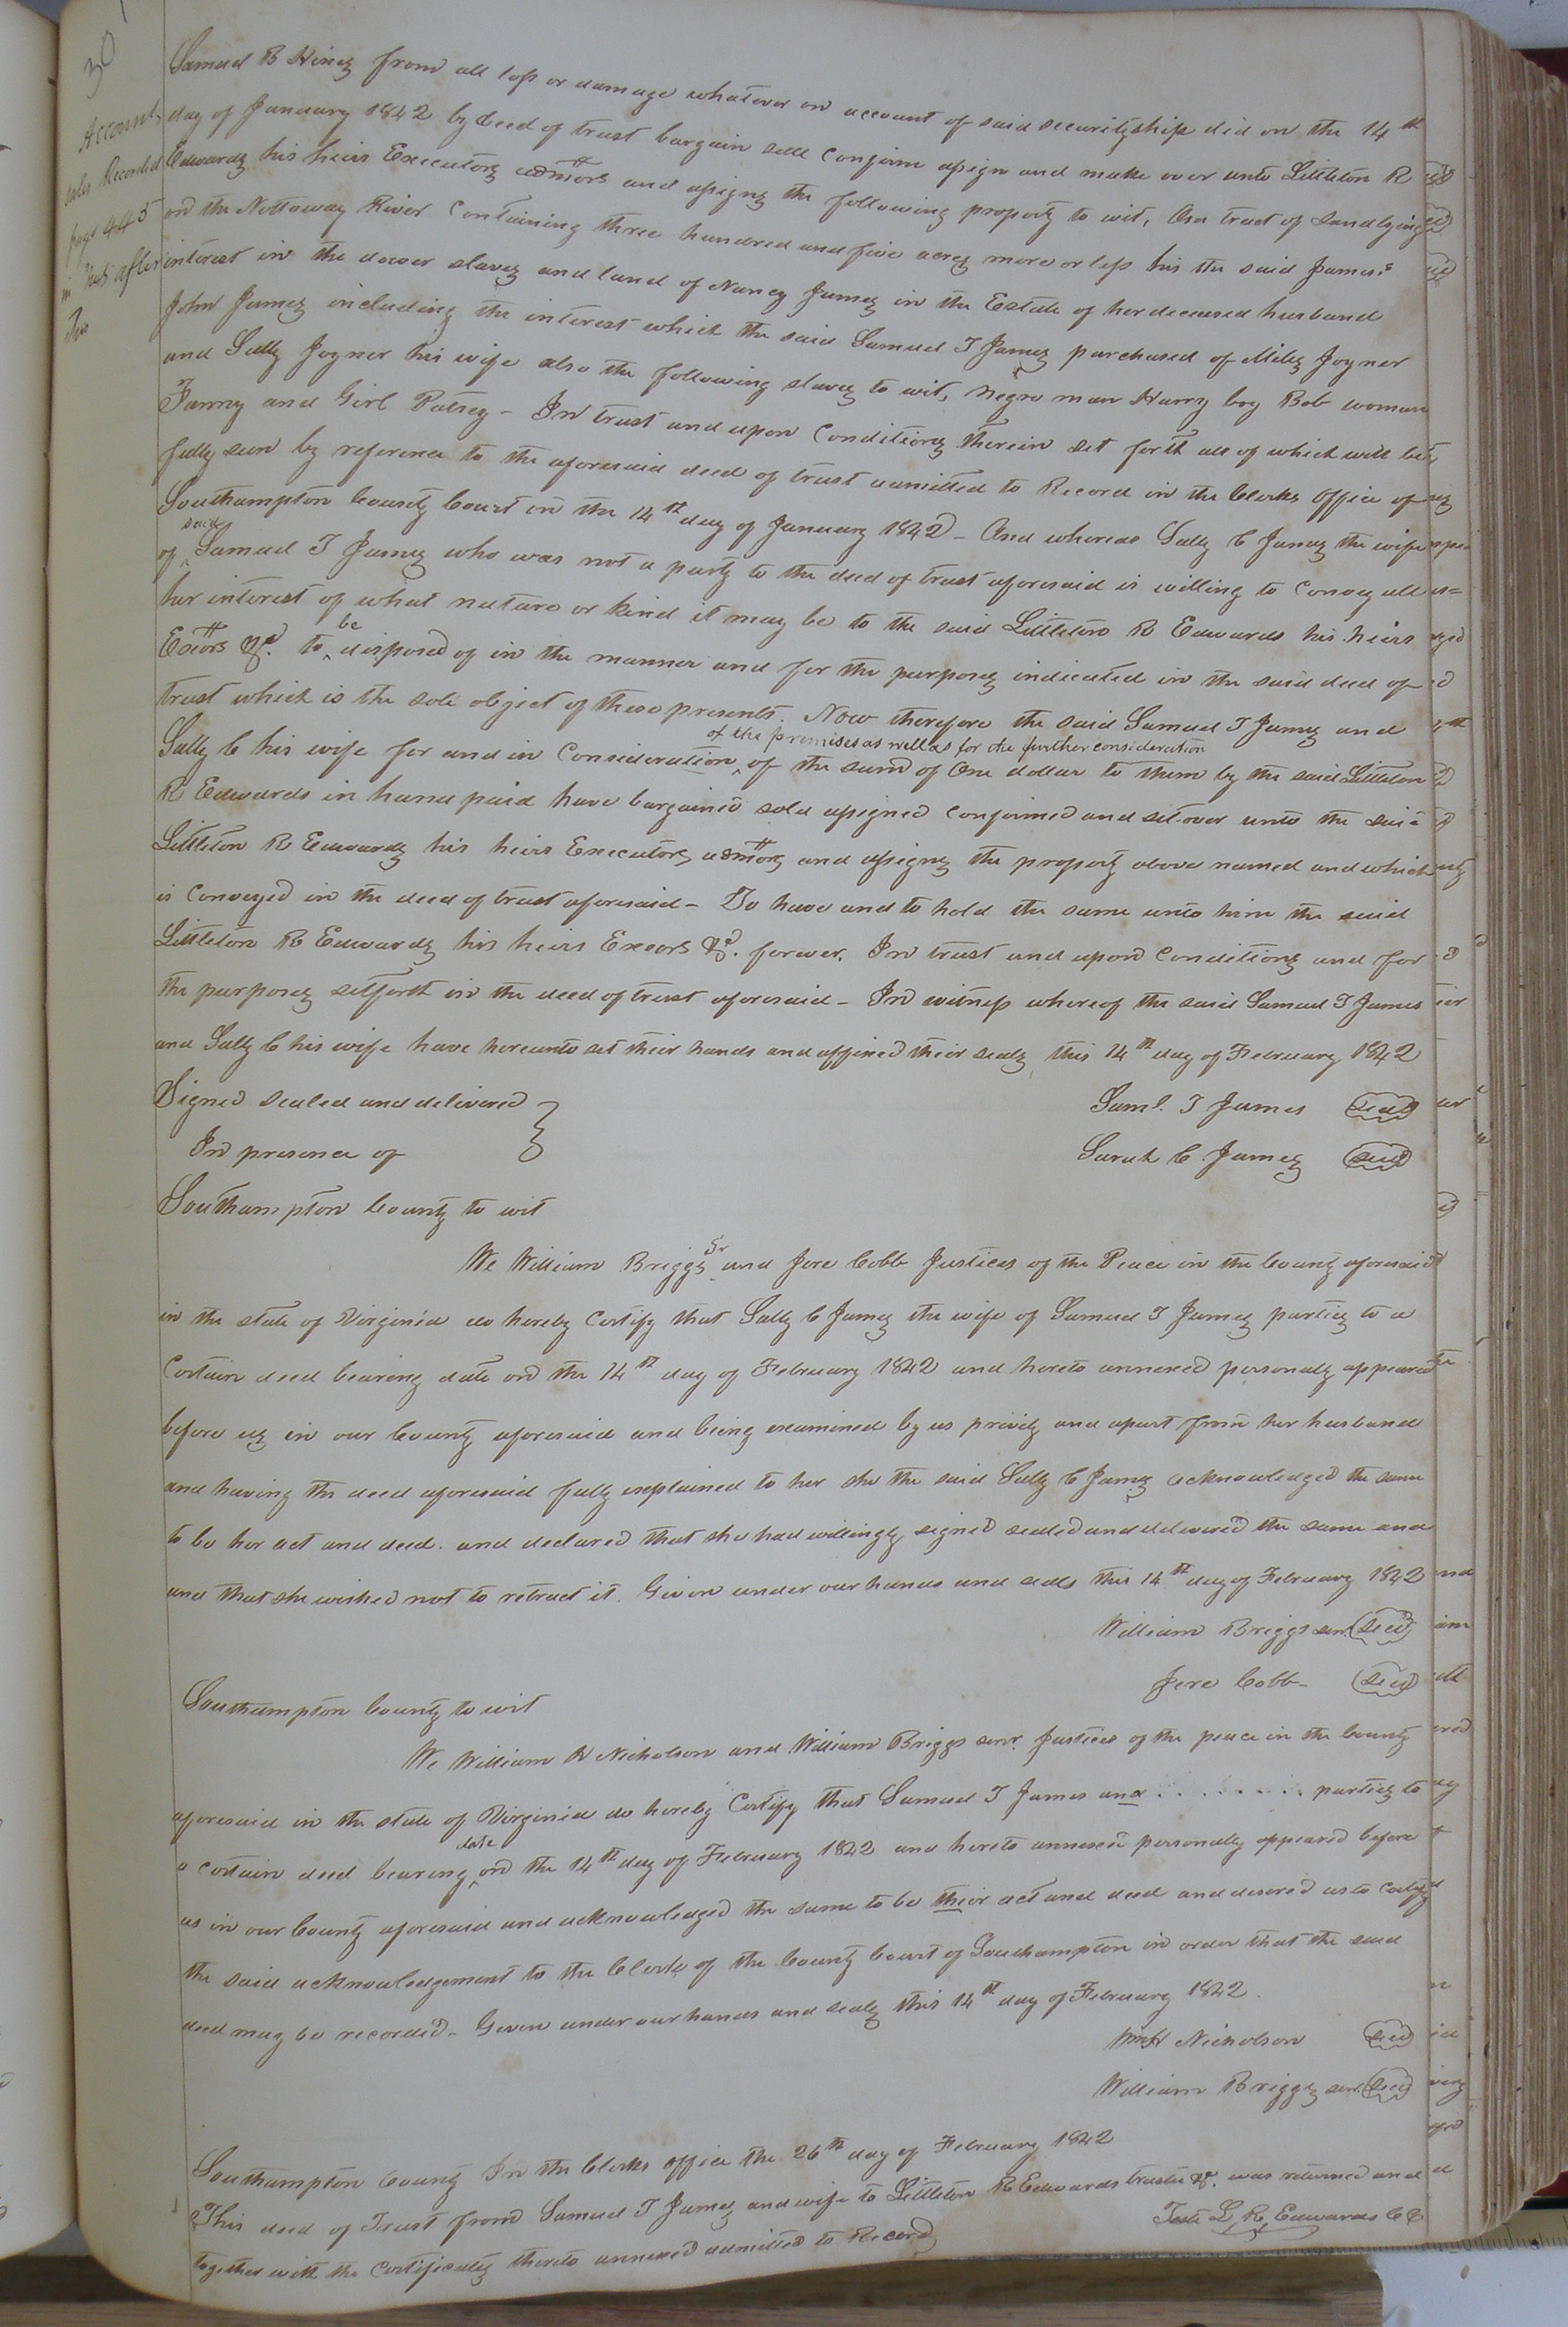 30
Account
sales Recorded
page 445
in
after
Samuel B Hines from all loss or damage whatever on account of said securityship did on the 14th
day of January 1842 by deed of trust bargain sell confirm assign and make over unto Littleton R
Edwards his heirs Executors admors and assigns the following property to wit, One tract of Land lying
on the Nottoway River Containing three hundred and five acres more or less his the said James's
interest in the dower slaves and land of Nancy James in the Estate of her deceased husband
John James including the interest which the said Samuel T James purchased of Miles Joyner
and Sally Joyner his wife also the following slaves to wit, Negro man Harry boy Bob woman
Fanny and Girl Patsey - In trust and upon Conditions therein set forth all of which will be
fully seen by reference to the aforesaid deed of trust admitted to Record in the Clerks Office of
Southampton County Court on the 14th day of January 1842 - And whereas Sally C James the wife
of said Samuel T James who was not a party to the deed of trust aforesaid is willing to convey all
her interest of what nature or kind it may be to the said Littleton R Edwards his heirs
Exors &c. to be disposed of in the manner and for the purposes indicated in the said deed of
trust which is the sole object of these presents. Now therefore the said Samuel T James and
of the premises as well as for the further consideration
Sally C his wife for and in Consideration of the sum of One dollar to them by the said Littleton
R Edwards in hand paid have bargained sold assigned confirmed and set over unto the said
Littleton R Edwards his heirs Executors admors and assigns the property above named and which
is Conveyed in the deed of trust aforesaid - To have and to hold the same unto him the said
Littleton R Edwards his heirs Execors &c. forever. In trust and upon Conditions and for
the purposes set forth in the deed of trust aforesaid - In witness whereof the said Samuel T James
and Sally C his wife have hereunto set their hands and affixed their seals this 14th day of February 1842
Signed sealed and delivered
In presence of
Saml. T James seal
Sarah C. James seal
Southampton County to wit
We William Briggs Sr and Jere Cobb Justices of the Peace in the County aforesaid
in the state of Virginia do hereby Certify that Sally C James the wife of Samuel T James parties to a
Certain deed bearing date on the 14th day of February 1842 and hereto annexed personally appeared
before us in our County aforesaid and being examined by us privily and apart from her husband
and having the deed aforesaid fully explained to her she the said Sally C James acknowledged the same
to be her act and deed. and declared that she had willingly signed sealed and delivered the same and
and that she wished not to retract it. Given under our hands and seals this 14th day of February 1842
William Briggs senr. seal
Jere Cobb - seal
Southampton County to wit
We William H Nicholson and William Briggs senr. Justices of the peace in the County
aforesaid in the state of Virginia do hereby Certify that Samuel T James and . . . . . . . . parties to
a certain deed bearing date on the 14th day of February 1842 and hereto annexed personally appeared before
us in our County aforesaid and acknowledged the same to be their act and deed and desired us to certify
the said acknowledgement to the Clerk of the County Court of Southampton in order that the said
deed may be recorded - Given under our hands and seals this 14th day of February 1842.
WmH Nicholson seal
William Briggs senr. seal
Southampton County In the Clerks office the 26th day of February 1842
This deed of Trust from Samuel T James and wife to Littleton R Edwards trustee &c. was returned and
together with the Certificates thereto annexed admitted to Record
Teste L, R, Edwards CC